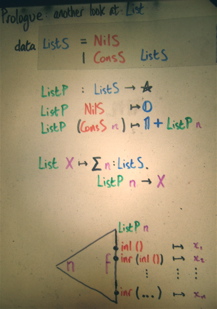 Prologue another look at List
data ListS = NilS
| ConsS ListS
ListP : ListS → ★
ListP NilS ↦ 𝟘
ListP (ConsS n) ↦ 𝟙 + ListP n
List X ↦ Σ n : ListS.
ListP n → X
ListP n
inl () ↦ x₁
inr (inl ()) ↦ x₂
⋮ ⋮ ⋮
inr (...) ↦ xₙ
n f